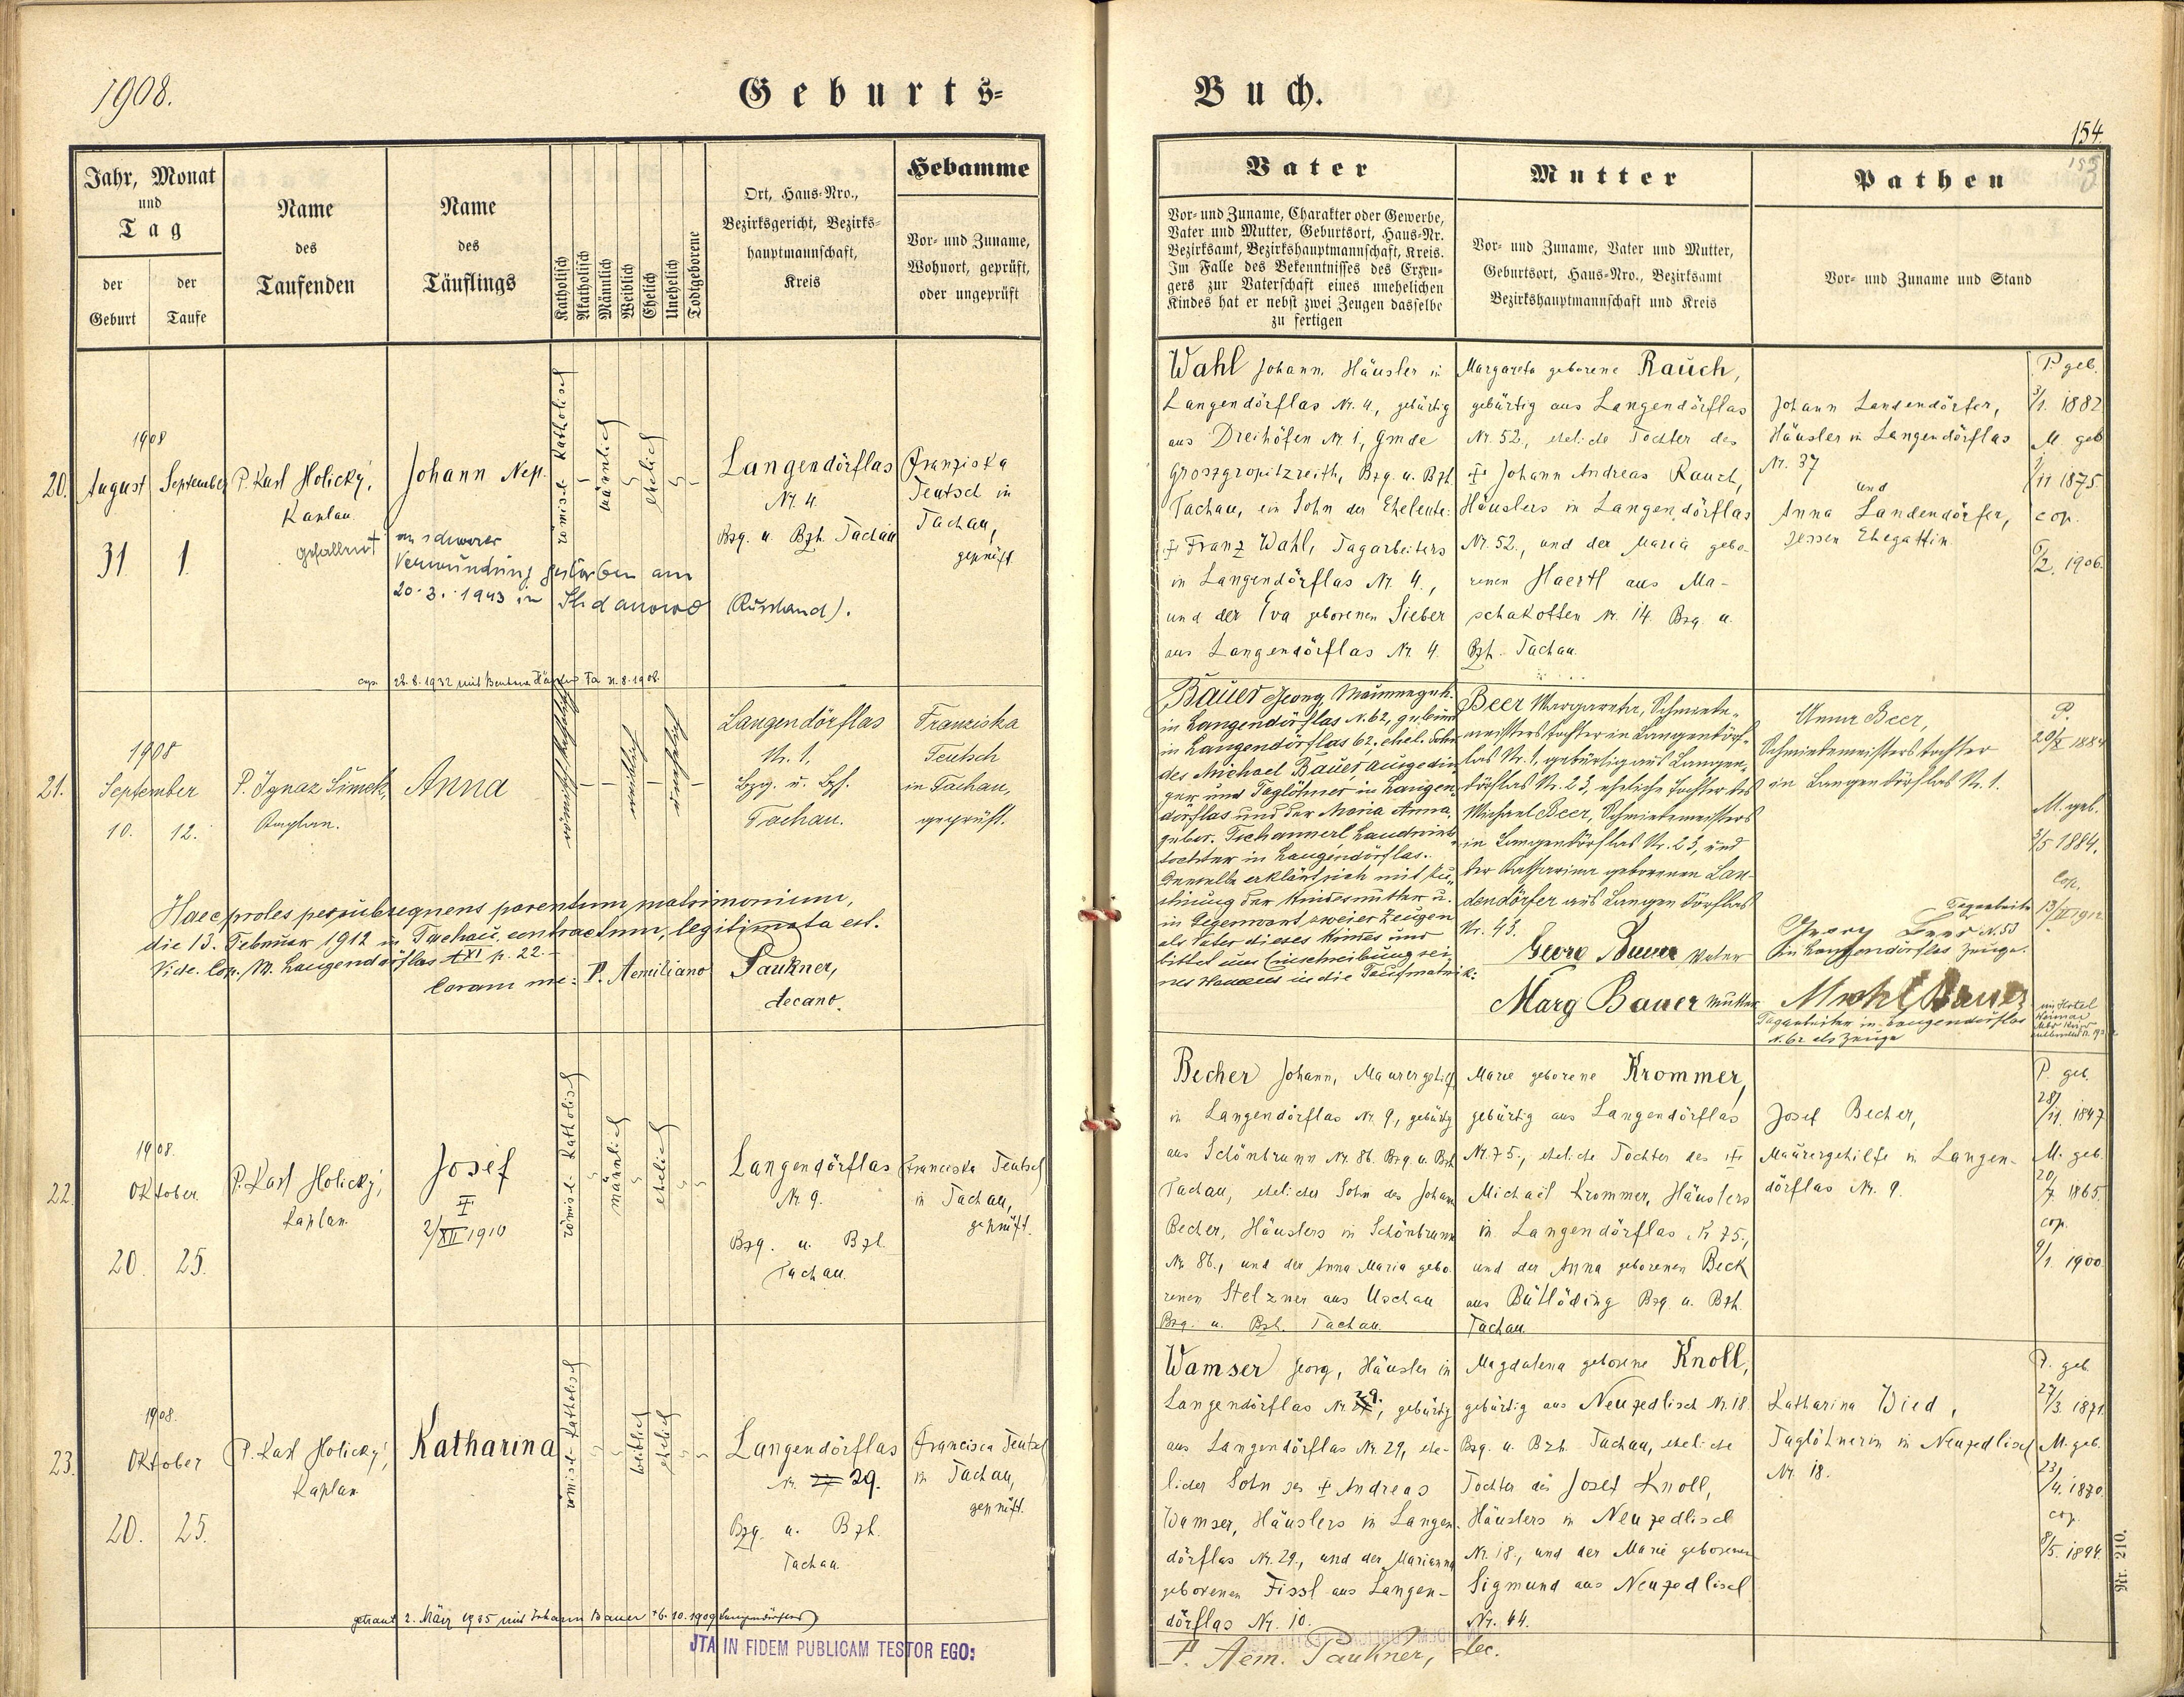 1908.
Geburts=
Buch.
154.
153
Jahr, Monat
und
Tag
der
Geburt
der
Taufe
Name
des
Taufenden
Name
des
Täuflings
Katholisch
Akatholisch
Männlich
Weiblich
Ehelich
Unehelich
Todtgeborene
Ort, Haus=Nro.,
Bezirksgericht, Bezirks=
hauptmannschaft,
Kreis
Hebamme
Vor= und Zuname,
Wohnort, geprüft,
oder ungeprüft
Vater
Vor= und Zuname, Charakter oder Gewerbe,
Vater und Mutter, Geburtsort, Haus=Nr.
Bezirksamt, Bezirkshauptmannschaft, Kreis.
Im Falle des Bekenntnisses des Erzeu=
gers zur Vaterschaft eines unehelichen
Kindes hat er nebst zwei Zeugen dasselbe
zu fertigen
Mutter
Vor= und Zuname, Vater und Mutter,
Geburtsort, Haus=Nro., Bezirksamt
Bezirkshauptmannschaft und Kreis
Pathen
Vor= und Zuname und Stand
20.
1908
August
31
September
1.
P. Karl Holický,
Kaplan
gefallen †
Johann Nep.
an schwerer
Verwundung gestorben am
20.3.1943 in Shdanowo (Russland).
römisch-katholisch
männlich
ehelich
Langendörflas
Nr. 4.
Bzg. u. Bzh. Tachau
Franziska
Teutsch in
Tachau,
geprüft.
cop. 28.8.1932 mit
Wahl Johann Häusler in
Langendörflas Nr. 4, gebürtig
aus Dreihöfen Nr. 1, Gmde
Groszgropitzreith, Bzg. u. Bzh.
Tachau, ein Sohn der Eheleute:
† Franz Wahl, Tagarbeiters
in Langendörflas Nr. 4.,
und der Eva geborenen Sieber
aus Langendörflas Nr. 4.
Margareta geborene Rauch,
gebürtig aus Langendörflas
Nr. 52., eheliche Tochter des
† Johann Andreas Rauch,
Häuslers in Langendörflas
Nr. 52., und der Maria gebo-
renen Haertl aus Ma-
schakotten Nr. 14. Bzg. u.
Bzh. Tachau.
Johann Landendörfer,
Häusler in Langendörflas
Nr. 37
und
Anna Landendörfer,
dessen Ehegattin
P. geb.
3/1. 1882
M. geb
/11 1875.
cop.
6/2. 1906.
21.
1908
September
10.
12.
P. Ignaz Šimek,
Kaplan.
Anna
römisch-katholisch
weiblich
unehelich
Langendörflas
Nr. 1,
Bzg. u. Bzh.
Tachau.
Franziska
Teutsch
in Tachau,
geprüft.
Haec proles per subsequens parentum matrimonium,
die 13. Februar 1912 in Tachau contractum, legitimata est.
Vide. Cop. M. Langendörflas t XI p. 22.-
Coram me: P. Aemiliano Paukner,
decano.
Bauer Georg, Maurergeh.
in Langendörflas N. 62, geboren
in Langendörflas 62. ehel. Sohn
des Michael Bauer Ausgedin-
ger und Taglöhner in Langen-
dörflas und der Maria Anna,
gebor. Tschannerl Landwirts-
tochter in Langendörflas.
Derselbe erklärt sich mit Zu-
stimmung der Kindesmutter u.
in Gegenwart zweier Zeugen
als Vater dieses Kindes und
bittet um Einschreibung sei-
nes Namens in die Taufmatrik:
Beer Margareta, Schmiede-
meisterstochter in Langendörf-
las Nr. 1, gebürtig aus Langen-
dörflas Nr. 23, eheliche Tochter des
Michael Beer, Schmiedemeisters
in Langendörflas Nr. 23, und
der Katharina geborenen Lan-
dendörfer aus Langendörflas
Nr. 43.
Georg Bauer Vater
Marg Bauer Mutter
Anna Beer,
Schmiedemeisterstochter
in Langendörflas Nr. 1.
Tagarbeiter
Georg Beer N. 53
in Langendörflas Zeuge.
Michl Bauer
Tagarbeiter in Langendörflas
N. 62 als Zeuge
P.
20/X 1884
M. geb.
3/5 1884.
Cop.
13/II 1912
22.
1908.
Oktober
20.
25.
P. Karl Holický,
Kaplan.
Josef
†
2/XII 1910
römisch-katholisch
männlich
ehelich
Langendörflas
Nr. 9.
Bzg. u. Bzh.
Tachau.
Franciska Teutsch
in Tachau,
geprüft.
Becher Johann, Maurergehilf
in Langendörflas Nr. 9, gebürtig
aus Schönbrunn Nr. 86. Bzg. u. Bzh
Tachau, ehelicher Sohn des Johann
Becher, Häuslers in Schönbrunn
Nr. 86., und der Anna Maria gebo-
renen Stelzner aus Uschau
Bzg. u. Bzh. Tachau.
Marie geborene Krommer,
gebürtig aus Langendörflas
Nr. 75., eheliche Tochter des †
Michael Krommer, Häuslers
in Langendörflas Nr. 75.,
und der Anna geborenen Beck
aus Büttöding Bzg. u. Bzh.
Tachau.
Josef Becher,
Maurergehilfe in Langen-
dörflas Nr. 9.
P. geb.
28/11. 1847
M. geb.
20/7. 1865.
cop.
9/1. 1900.
23.
1908.
Oktober
20.
25.
P. Karl Holický,
Kaplan
Katharina
römisch-katholisch
weiblich
ehelich
Langendörflas
Nr. 29.
Bzg. u. Bzh.
Tachau.
Francisca Teutsch
in Tachau,
geprüft.
getraut 2. März 1935 mit Johann Bauer *6.10.1909 Langendörflas)
Wamser Georg, Häusler in
Langendörflas Nr. 29., gebürtig
aus Langendörflas Nr. 29, ehe-
licher Sohn des † Andreas
Wamser, Häuslers in Langen-
dörflas Nr. 29., und der Marianna
geborenen Fissl aus Langen-
dörflas Nr. 10.
Magdalena geborene Knoll,
gebürtig aus Neuzedlisch Nr. 18
Bzg. u. Bzh. Tachau, eheliche
Tochter des Josef Knoll,
Häuslers in Neuzedlisch
Nr. 18., und der Marie geborenen
Sigmund aus Neuzedlisch
Nr. 44.
Katharina Wied,
Taglöhnerin in Neuzedlisch
Nr. 18.
P. geb.
27/3. 1871.
M. geb.
23/4. 1870.
cop.
8/5. 1894.
JTA IN FIDEM PUBLICAM TESTOR EGO:
P. Aem. Paukner, dec.
Nr. 210.